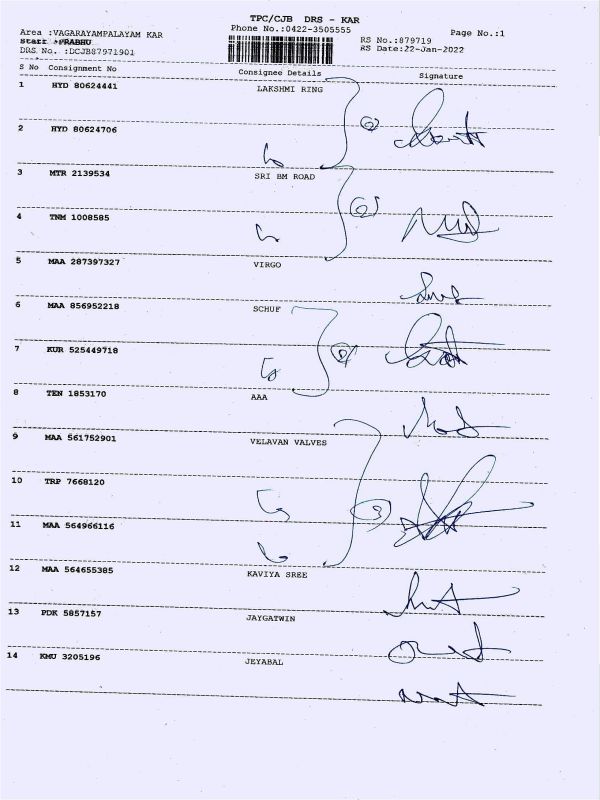 TPC/CJB DRS - KAR
Area :VAGARAYAMPALAYAM KAR Phone No.:0422-3505555 Page No.:1
Staff :PRABHU RS No.:879719
DRS No. :DCJB87971901 RS Date:22-Jan-2022
S No Consignment No Consignee Details Signature
1 HYD 80624441 LAKSHMI RING
2 HYD 80624706
3 MTR 2139534 SRI BM ROAD
4 TNM 1008585
5 MAA 287397327 VIRGO
6 MAA 856952218 SCHUF
7 KUR 525449718
8 TEN 1853170 AAA
9 MAA 561752901 VELAVAN VALVES
10 TRP 7668120
11 MAA 564966116
12 MAA 564655385 KAVIYA SREE
13 PDK 5857157 JAYGATWIN
14 KMU 3205196 JEYABAL